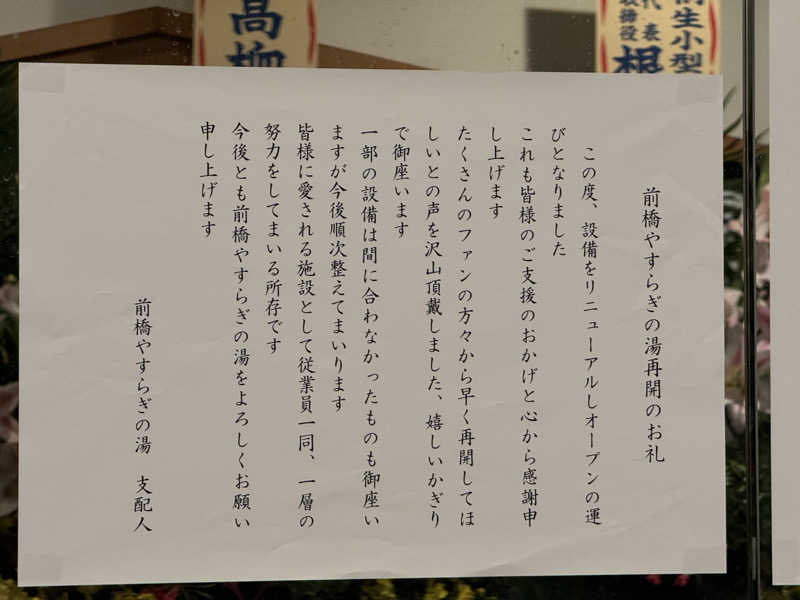 前橋やすらぎの湯再開のお礼
この度、設備をリニューアルしオープンの運
びとなりました
これも皆様のご支援のおかげと心から感謝申
し上げます
たくさんのファンの方々から早く再開してほ
しいとの声を沢山頂戴しました、嬉しいかぎり
で御座います
一部の設備は間に合わなかったものも御座い
ますが今後順次整えてまいります
皆様に愛される施設として従業員一同、一層の
努力をしてまいる所存です
今後とも前橋やすらぎの湯をよろしくお願い
申し上げます
前橋やすらぎの湯　支配人
生小型
代表
取締役
根
高柳